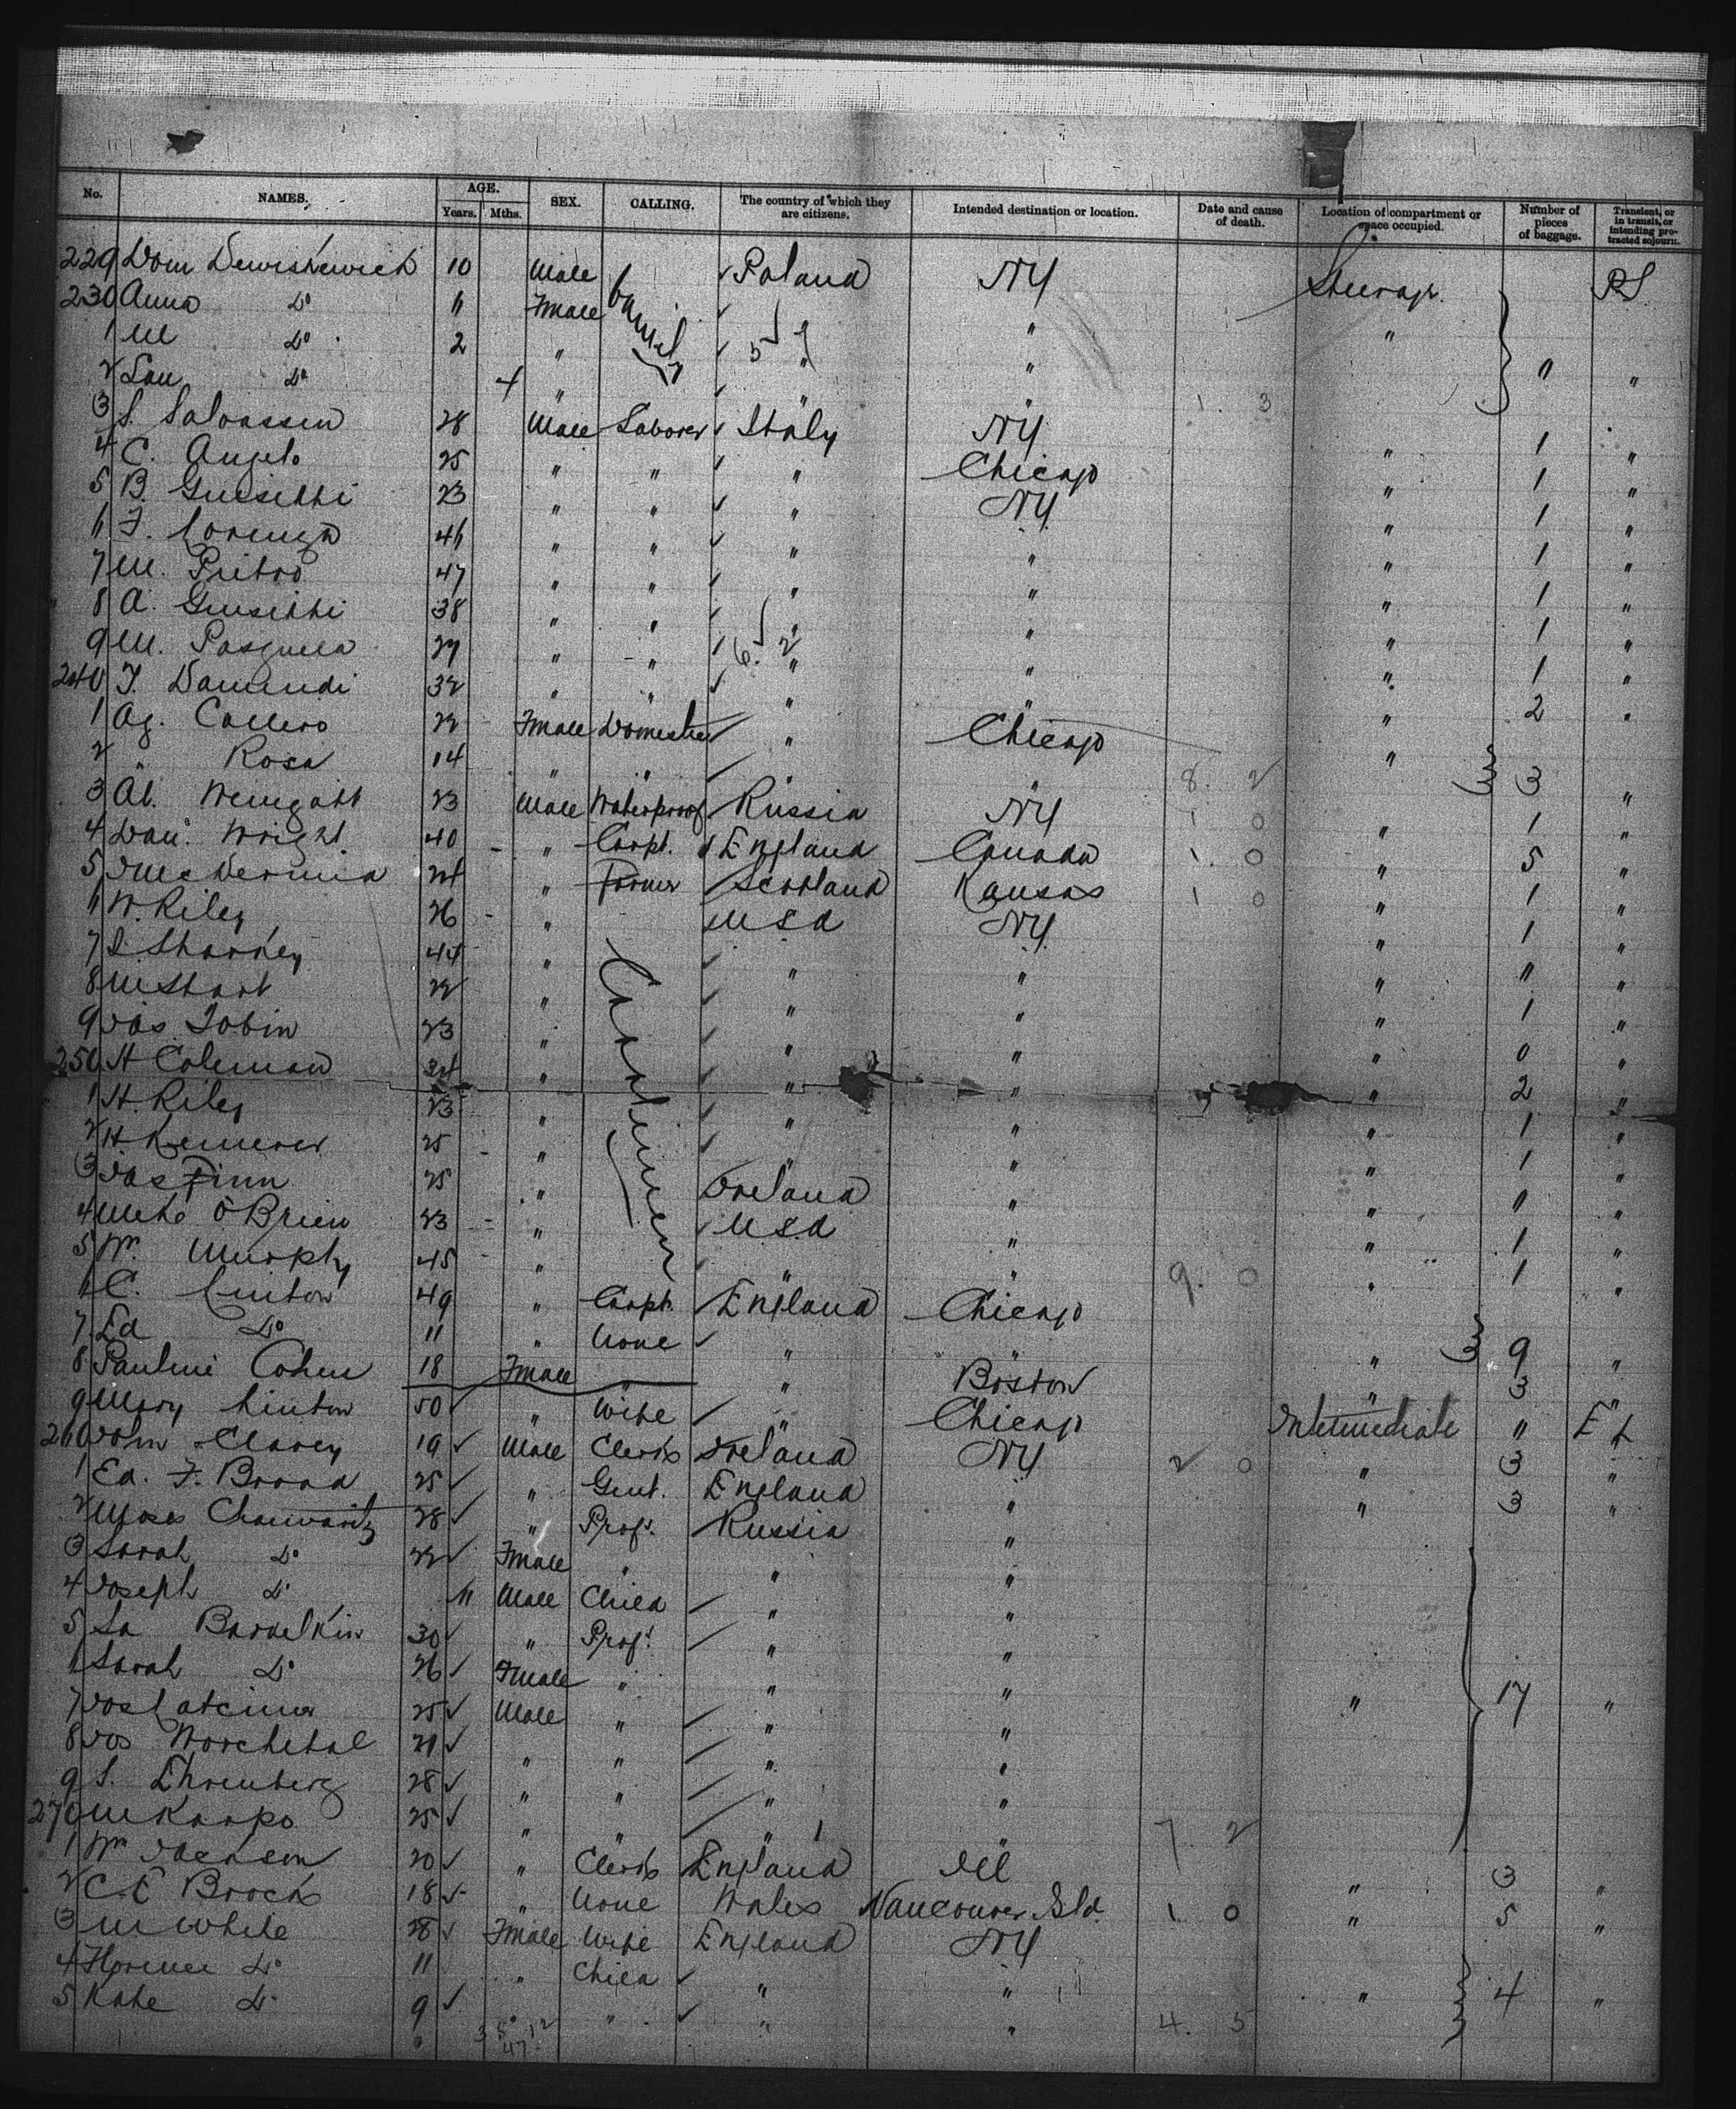 No. NAMES. AGE. Years. Mths. SEX. CALLING. The country of which they are citizens. Intended destination or location. Date and cause of death. Location of compartment or space occupied. Number of pieces of baggage. Transient, or in transit, or intending protracted sojourn.
229 Dom 10 Male Family Poland NY Steerage PS
230 Anna Do 6 Fmale "
1 Do 2 " 5 " " " "
2 Do 4 " " " 1. 3
3 S. 28 Male Laborer Italy NY " 1 "
4 C. Angelo 25 " " " Chicago " 1 "
5 B. Guisitti 23 " " " NY " 1 "
6 F. Lorenza 46 " " " " " 1 "
7 M. Pietro 47 " " " " " 1 "
8 A. Guisitti 38 " " " " " 1 "
9 M. 27 " " 6. 2 " " " 1 "
240 32 " " " " " 2 "
1 Ag. Callero 22 Fmale Domestic " Chicago "
2 " Rosa 14 " " " " 8. 2 3 "
3 Ab. Weingatt 23 Male Waterproof Russia NY 1 0 " 1 "
4 Dan. Wright 40 " Carpt. England Canada 1. 0 " 5 "
5 24 " Farmer Scotland Kansas 1 0 " 1 "
6 W. Riley 26 " Cattlemen USA NY " 1 "
7 S. Sharkey 44 " " " " " "
8 M Start 22 " " " " 1 "
9 Jas. Tobin 23 " " " " 0 "
250 H Coleman 34 " " " " 2 "
1 H. Riley 23 " " " " 1 "
2 H 25 " " " " 1 "
3 Jas Finn 25 " Ireland " " " "
4 O'Brien 23 " U.S.A " " 1 "
5 Wm. Murphy 45 " " " 9. 0 " 1 "
6 C. Linton 49 " Carpt. England Chicago
7 Ed Do 11 " None " " " 9 "
8 Pauline Cohen 18 Fmale " " Boston " 3 "
9 Mary Linton 50 " Wife " Chicago Intermediate "
260 John Clarey 19 Male Clerk Ireland NY 2 0 " 3 "
1 Ed. F. Broad 25 " Gent. England " " 3 "
2 Moses 28 " Prof. Russia "
3 Sarah Do 22 Fmale " " "
4 Joseph Do 11 Male Child " "
5 30 " Prof. " "
6 Sarah Do 26 Fmale " " "
7 Jos 25 Male " " " " 17 "
8 Jos 21 " " " "
9 S. Ehrenberg 28 " " " "
270 M 25 " " " " 7. 2
1 Wm Jackson 20 " Clerk England Ill " 3 "
2 C.E Brooks 18 " None Wales Vancouver Isld. 1. 0 " 5 "
3 M White 28 Fmale Wife England NY
4 Florence Do 11 " Child " " " 4 "
5 Kate Do 9 " " " " 4. 5